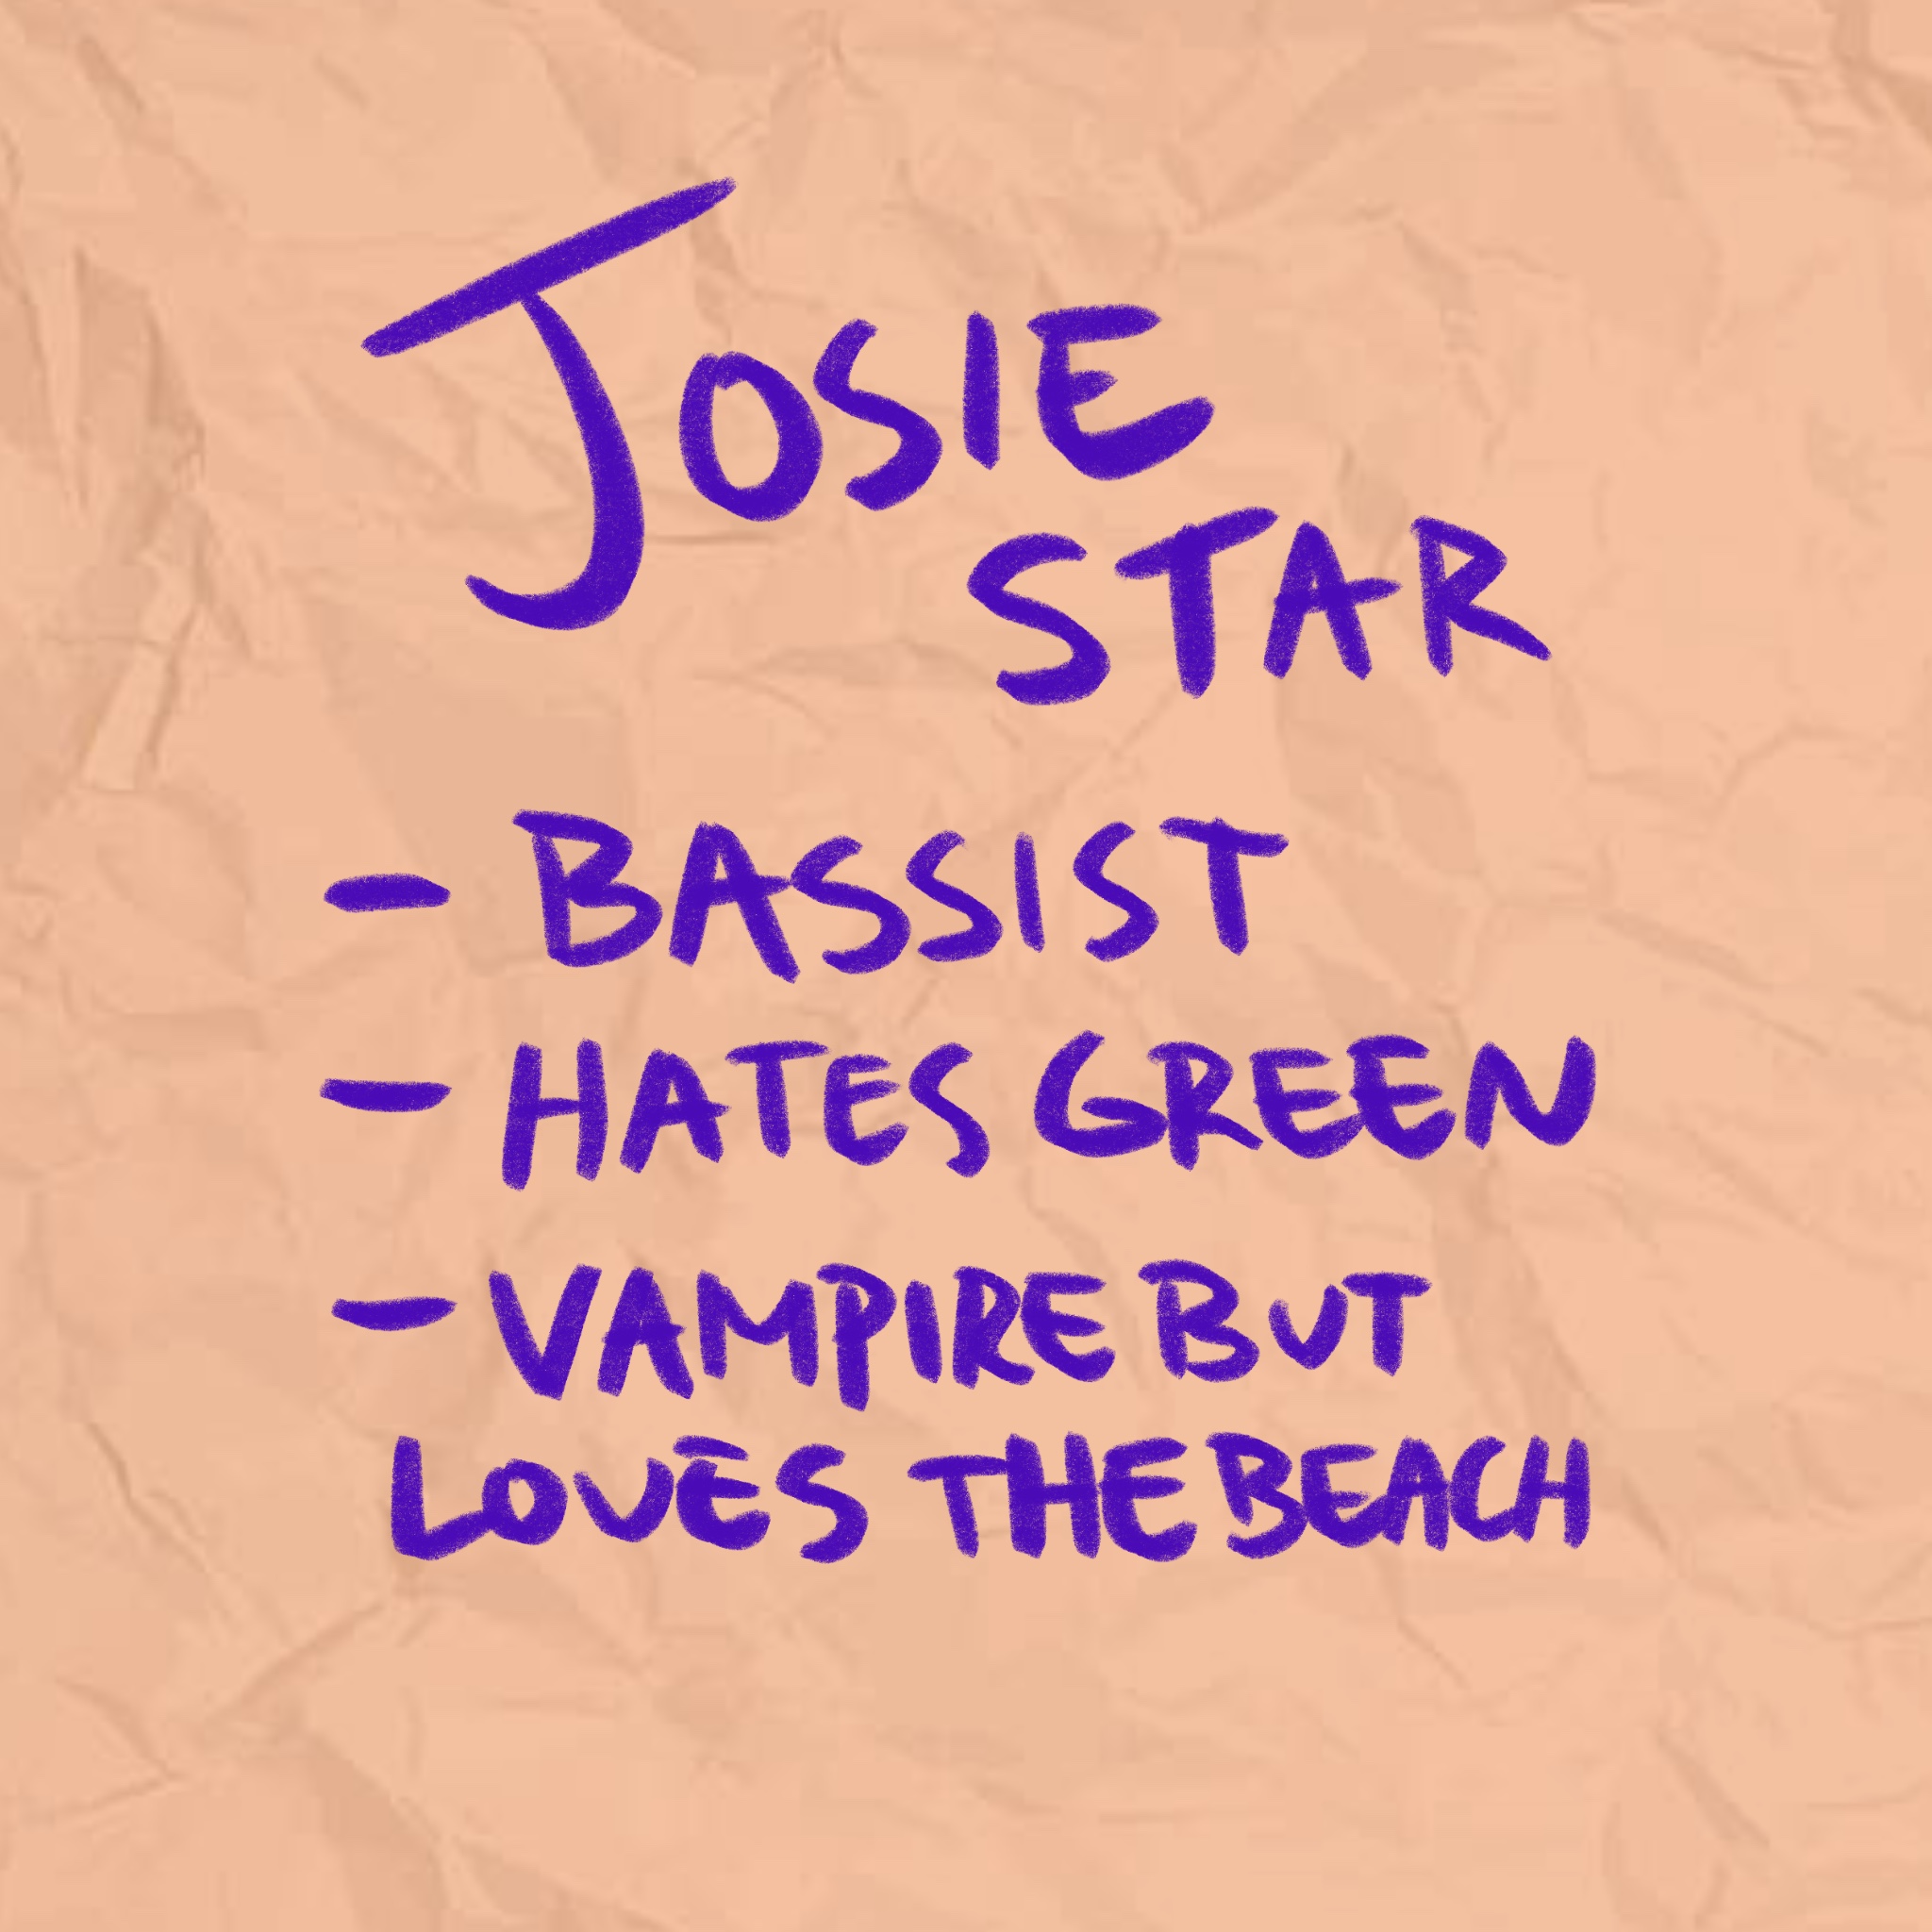 JOSIE
STAR
- BASSIST
- HATES GREEN
- VAMPIRE BUT
LOVES THE BEACH